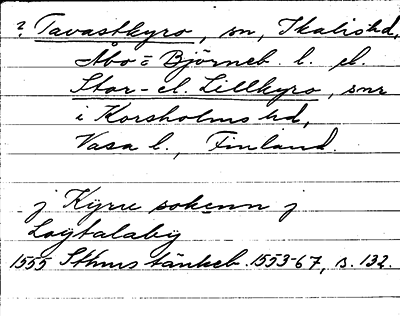 ? Tavastkyro, sn, Ikalis hd,
Åbo= Björneb. l. el.
Stor- el. Lillkyro, snr
i Korsholms hd,
Vasa l., Finland.
j Kyrie sokenn j
Loytalaby
1555 Sthms tänkeb. 1553-67, s. 132.